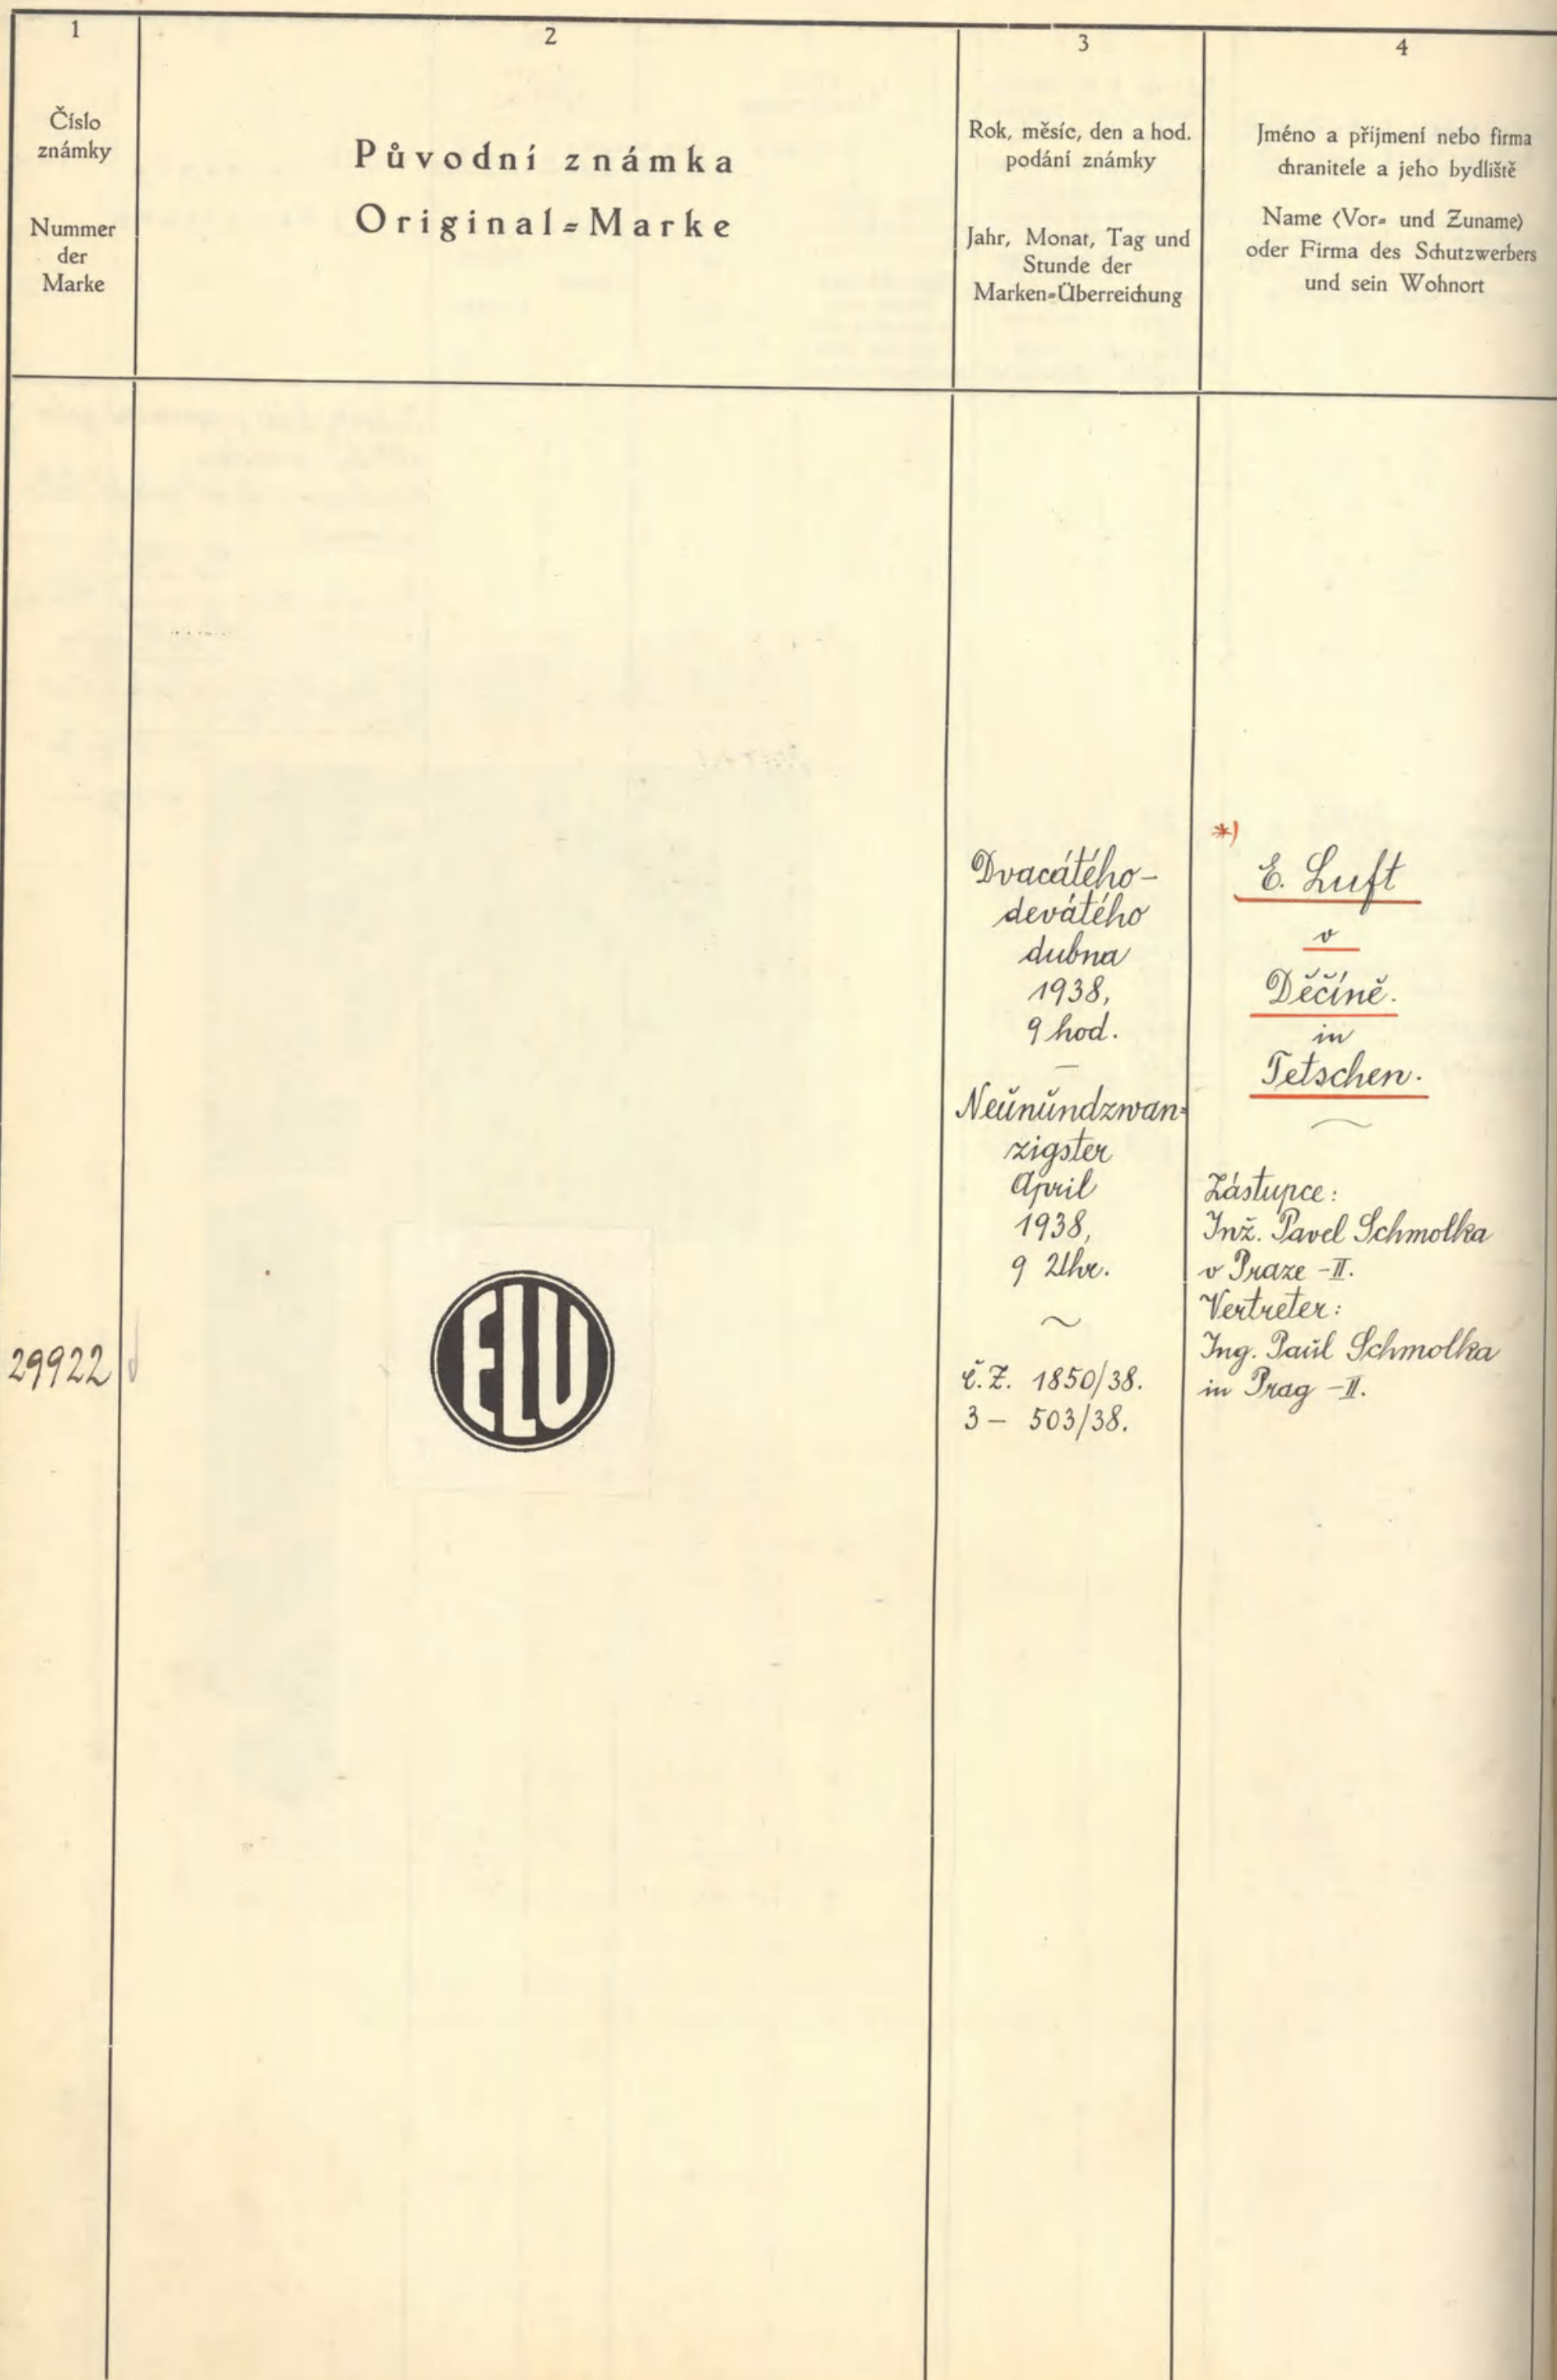 1
2
3
4
Číslo
známky
Nummer
der
Marke
Původní známka
Original=Marke
Rok, měsíc, den a hod.
podání známky
Jahr, Monat, Tag und
Stunde der
Marken=Überreichung
Jméno a příjmení nebo firma
chranitele a jeho bydliště
Name (Vor= und Zuname)
oder Firma des Schutzwerbers
und sein Wohnort
29922
ELU
Dvacátého-
devátého
dubna
1938,
9 hod.
Neŭnŭndzwan=
zigster
April
1938,
9 Uhr.
č.Z. 1850/38.
3 - 503/38.
*)
E. Luft
v
Děčíně.
in
Tetschen.
Zástupce:
Inž. Pavel Schmolka
v Praze -II.
Vertreter:
Ing. Paŭl Schmolka
in Prag -II.